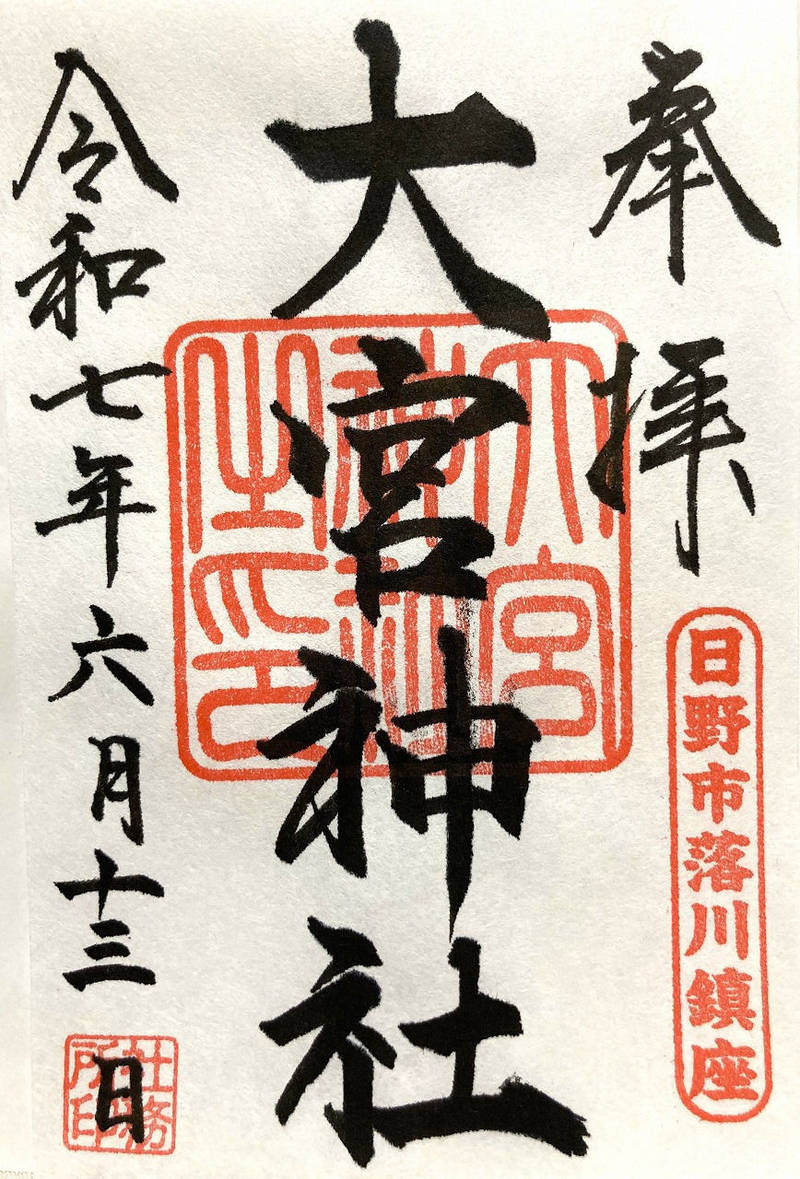 奉拝
日野市落川鎮座
大宮神社
大宮神社之印
令和七年六月十三日
社務所印